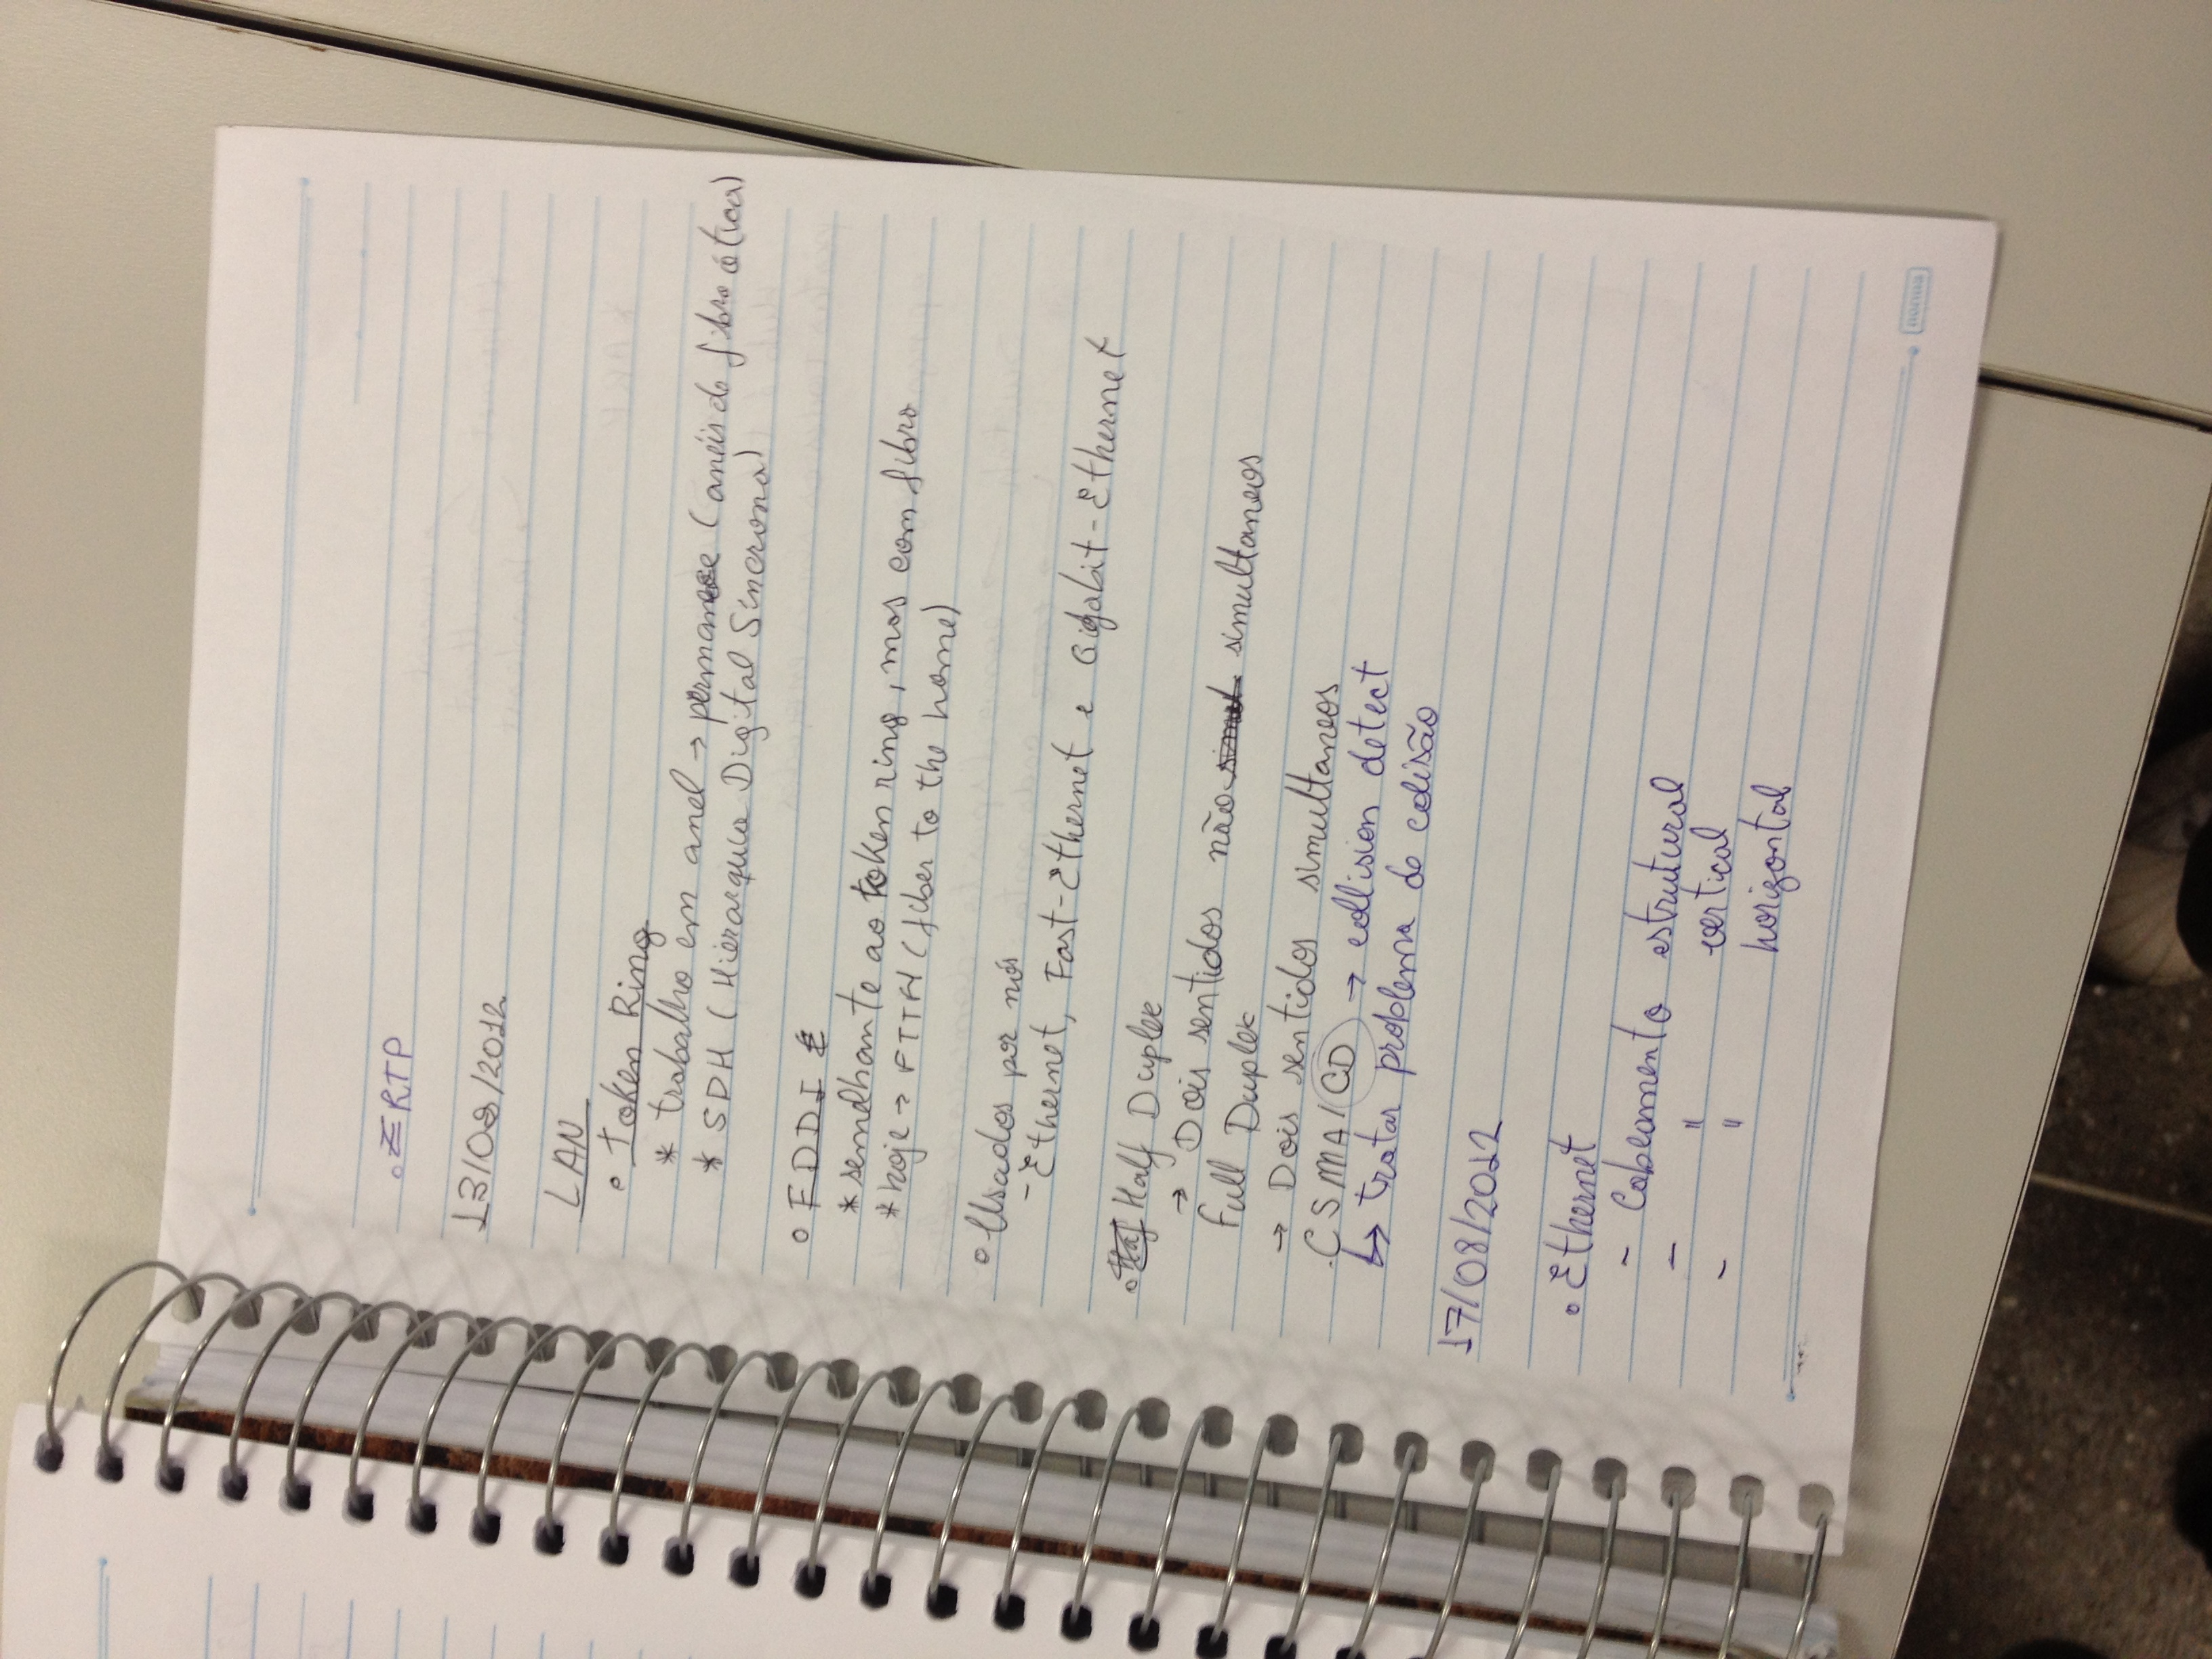 RTP
13/08/2012
LAN
• Token Ring
* trabalho em anel → permanece (anéis de fibra ótica)
* SDH (Hierarquia Digital Síncrona)
• FDDI
* semelhante ao token ring, mas com fibra
* hoje → FTTH (fiber to the home)
• Usados por nós
- Ethernet, Fast-Ethernet e Gigabit-Ethernet
• Half Duplex
→ Dois sentidos não simultaneos
Full Duplex
→ Dois sentidos simultaneos
. CSMA/CD → collision detect
↳ tratar problema de colisão
17/08/2012
• Ethernet
- Cabeamento estrutural
- " vertical
- " horizontal
norma